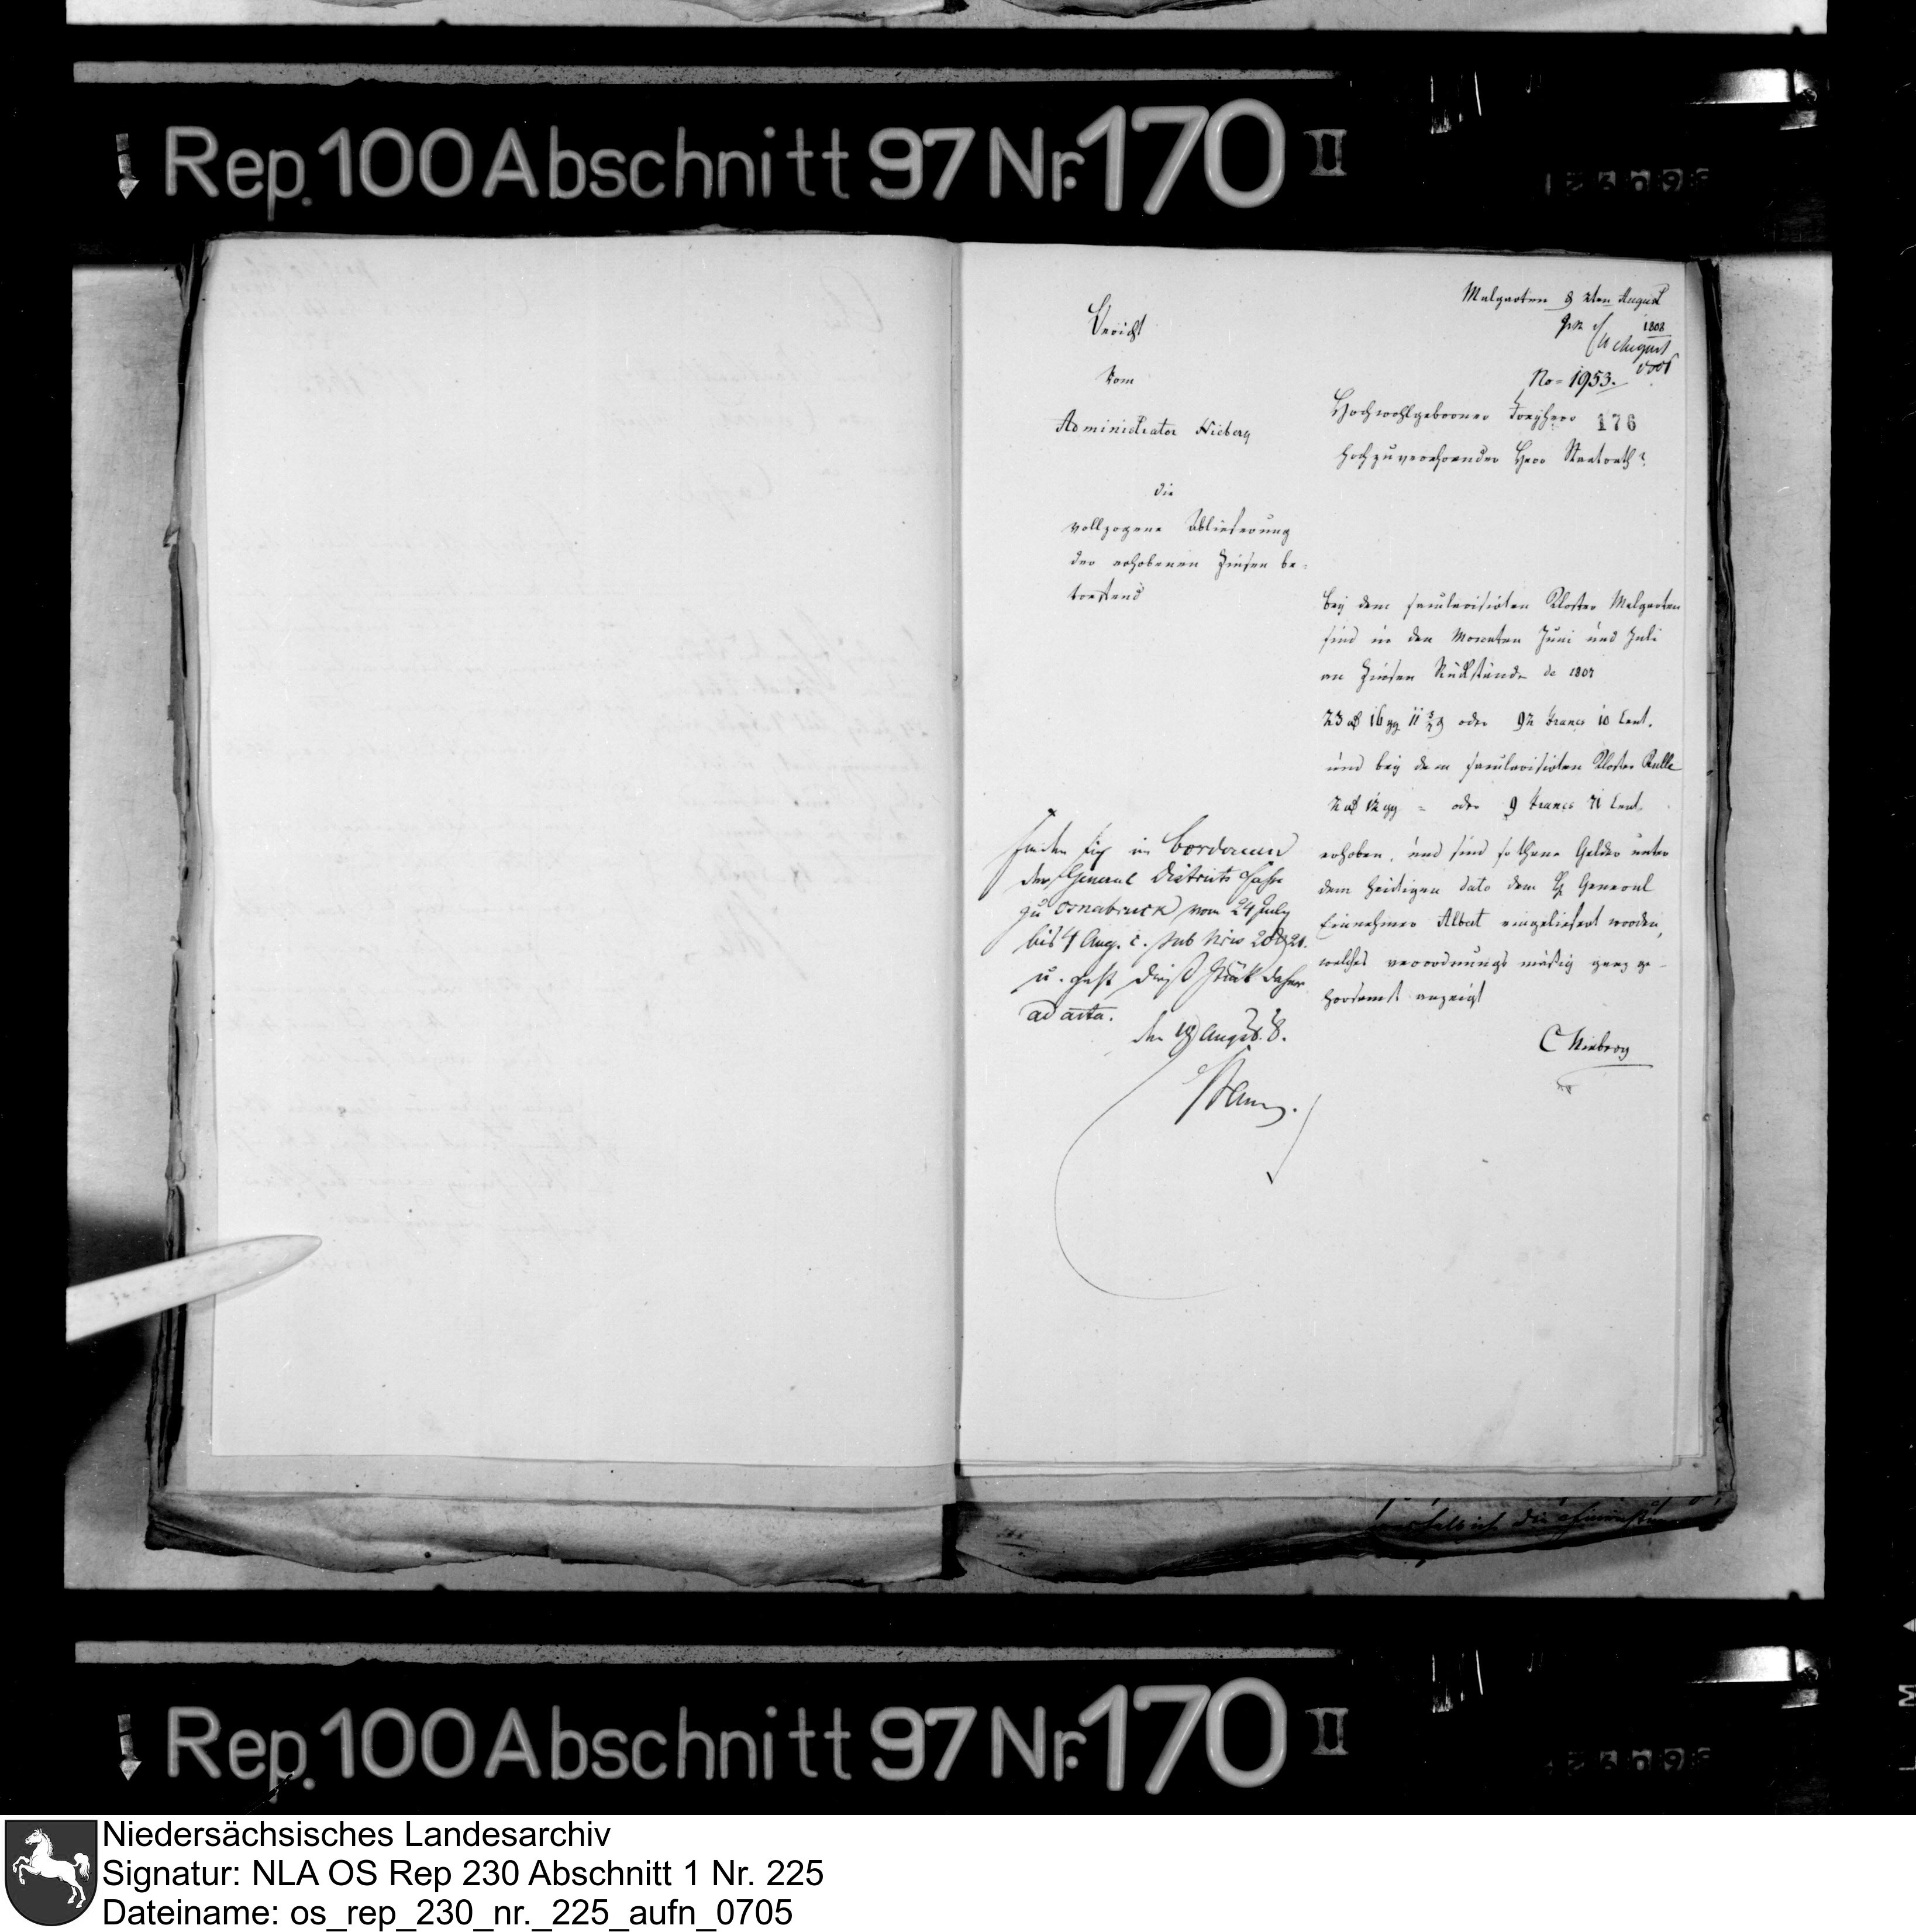 Rep. 100 Abschnitt 97 Nr. 170 II
Malgarten d 2ten August
1808
August
No = 1953.
176
Bericht
vom
Administrator Nieberg
die
vollzogene Ablieferung
der erhobenen Zinsen be-
treffend
Hochwohlgeborner Freyherr
Hochzuverehrender Herr Staatsrath!
bey dem secularisirten Kloster Malgarten
sind in den Monaten Juni und Juli
an Zinsen Rückstände de 1807
oder 92 Francs 10 Cent.
und bey dem secularisirten Kloster Rulle
oder 9 Francs 71 Cent.
erhoben, und sind sothane Gelder unter
dem heutigen dato dem General
Einnehmer Albert eingeliefert worden,
welches verordnungs mäßig ganz ge-
horsamst anzeigt
C Nieberg
finden sich im Bordereau
der General Districts Casse
zu Osnabruck vom 24 July
bis 4 Aug. c. sub Nris 20 & 21.
u. geht dieß Stück daher
ad acta.
den 19 August 8.
Rep. 100 Abschnitt 97 Nr. 170 II
Niedersächsisches Landesarchiv
Signatur: NLA OS Rep 230 Abschnitt 1 Nr. 225
Dateiname: os_rep_230_nr._225_aufn_0705